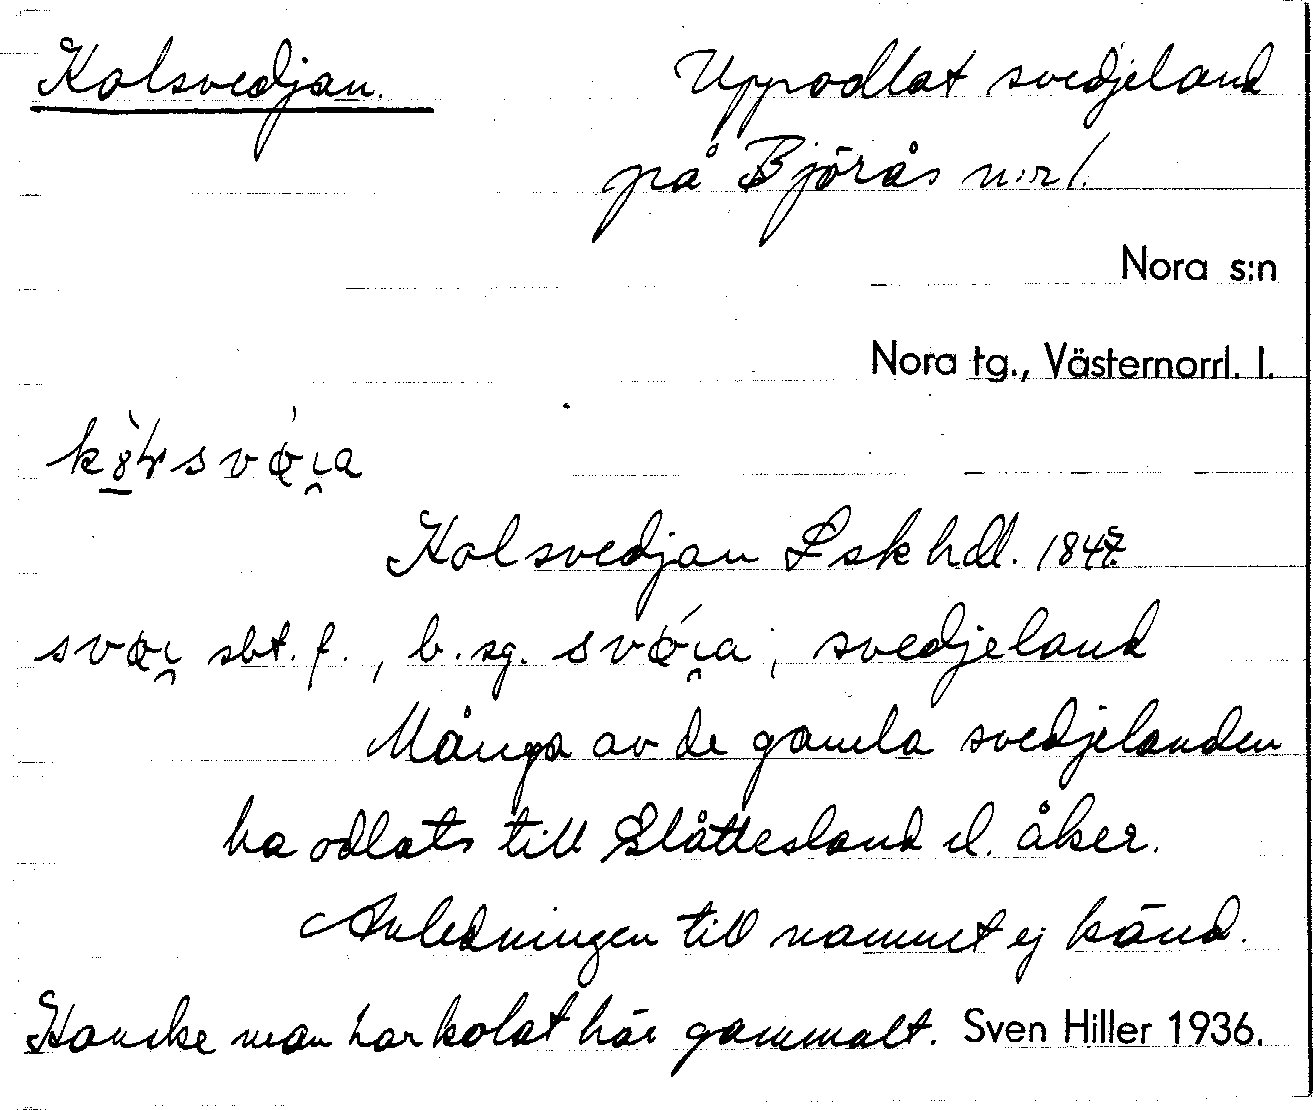 Kolsvedjan.
Uppodlat svedjeland
på Björås n:r 1.
Nora s:n
Nora tg., Västernorrl. l.
Kolsvedjan Lskhdl. 1847.
sbt. f., b. sg. ; svedjeland
Många av de gamla svedjelanden
ha odlats till Slåttesland el. åker.
Anledningen till namnet ej känd.
Kanske man har kolat här gammalt. Sven Hiller 1936.